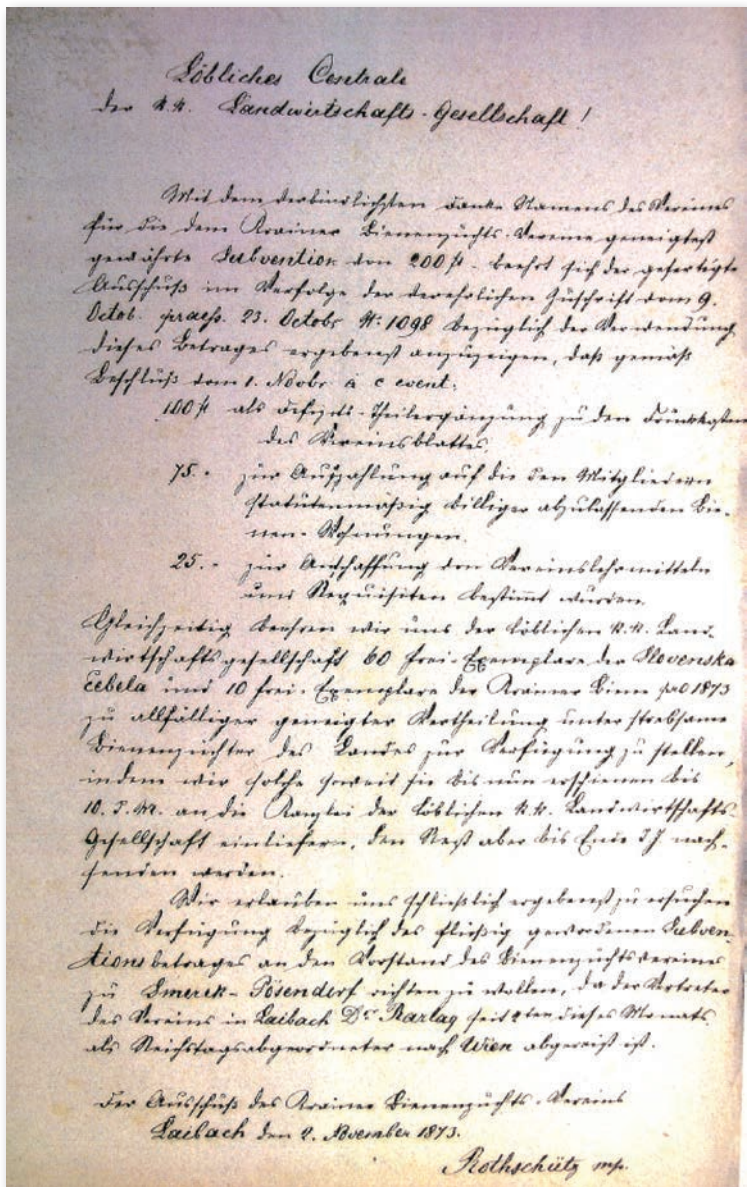 Löbliches Centrale
der k.k. Landwirtschafts-Gesellschaft!
Mit dem verbindlichsten Danke Namens des Vereines
für die dem Krainer Bienenzuchts-Vereine geneigtest
gewährte Subvention von 200 fl. beehrt sich der gefertigte
Ausschuß im Verfolge der verehrlichen Zuschrift vom 9.
Octob. praes. 23. Octobr N: 1098 bezüglich der Verwendung
dieses Betrages ergebenst anzuzeigen, daß gemäß
Beschluß vom 1. Novbr a c event:
100 fl als Defizits-Theilergänzung zu den Druckkosten
des Vereinsblattes,
75.- zur Aufzahlung auf die den Mitgliedern
statutenmäßig billiger abzulassenden Bie-
nen-Wohnungen.
25.- zur Anschaffung von Vereinslehrmitteln
und Requisiten bestimmt wurden.
Gleichzeitig beehren wir uns der löblichen k.k. Land-
wirtschaftsgesellschaft 60 frei-Exemplare der Slovenska
čebela und 10 frei-Exemplare der Krainer Biene pro 1873
zu allfälliger geneigter Vertheilung unter strebsame
Bienenzüchter des Landes zur Verfügung zu stellen,
indem wir solche soweit sie bis nun erschienen bis
10. d. M. an die Kanzlei der löblichen k.k. Landwirtschafts-
Gesellschaft einliefern, den Rest aber bis Ende d J. nach-
senden werden.
Wir erlauben uns schließlich ergebenst zu ersuchen
die Verfügung bezüglich des flüßig gewordenen Subven-
tionsbetrages an den Vorstand des Bienenzuchtsvereines
zu Smerek-Pösendorf richten zu wollen, da der Vertreter
des Vereins in Laibach Dr Razlag seit 2ten dieses Monats
als Reichstagsabgeordneter nach Wien abgereist ist.
Der Ausschuß des Krainer Bienenzuchts-Vereins
Laibach den 2. November 1873.
Rothschütz mp.